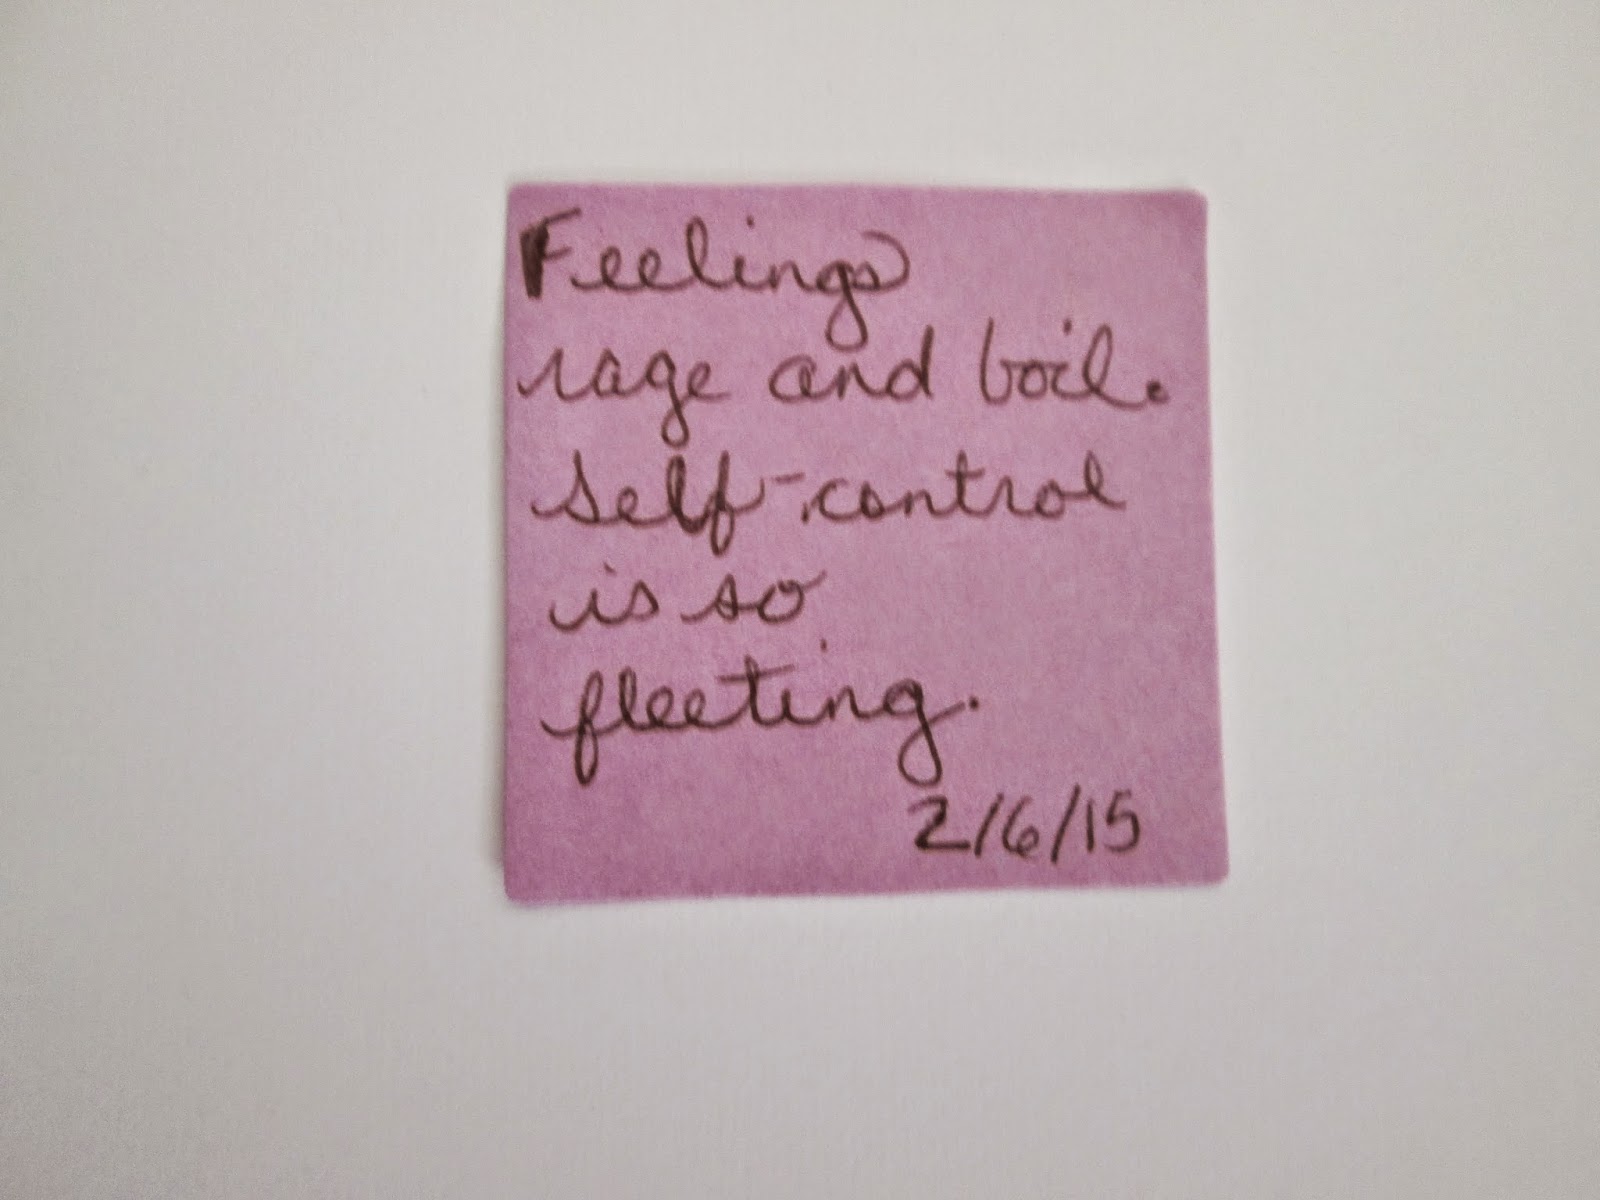 Feelings
rage and boil.
Self-control
is so
fleeting.
2/6/15